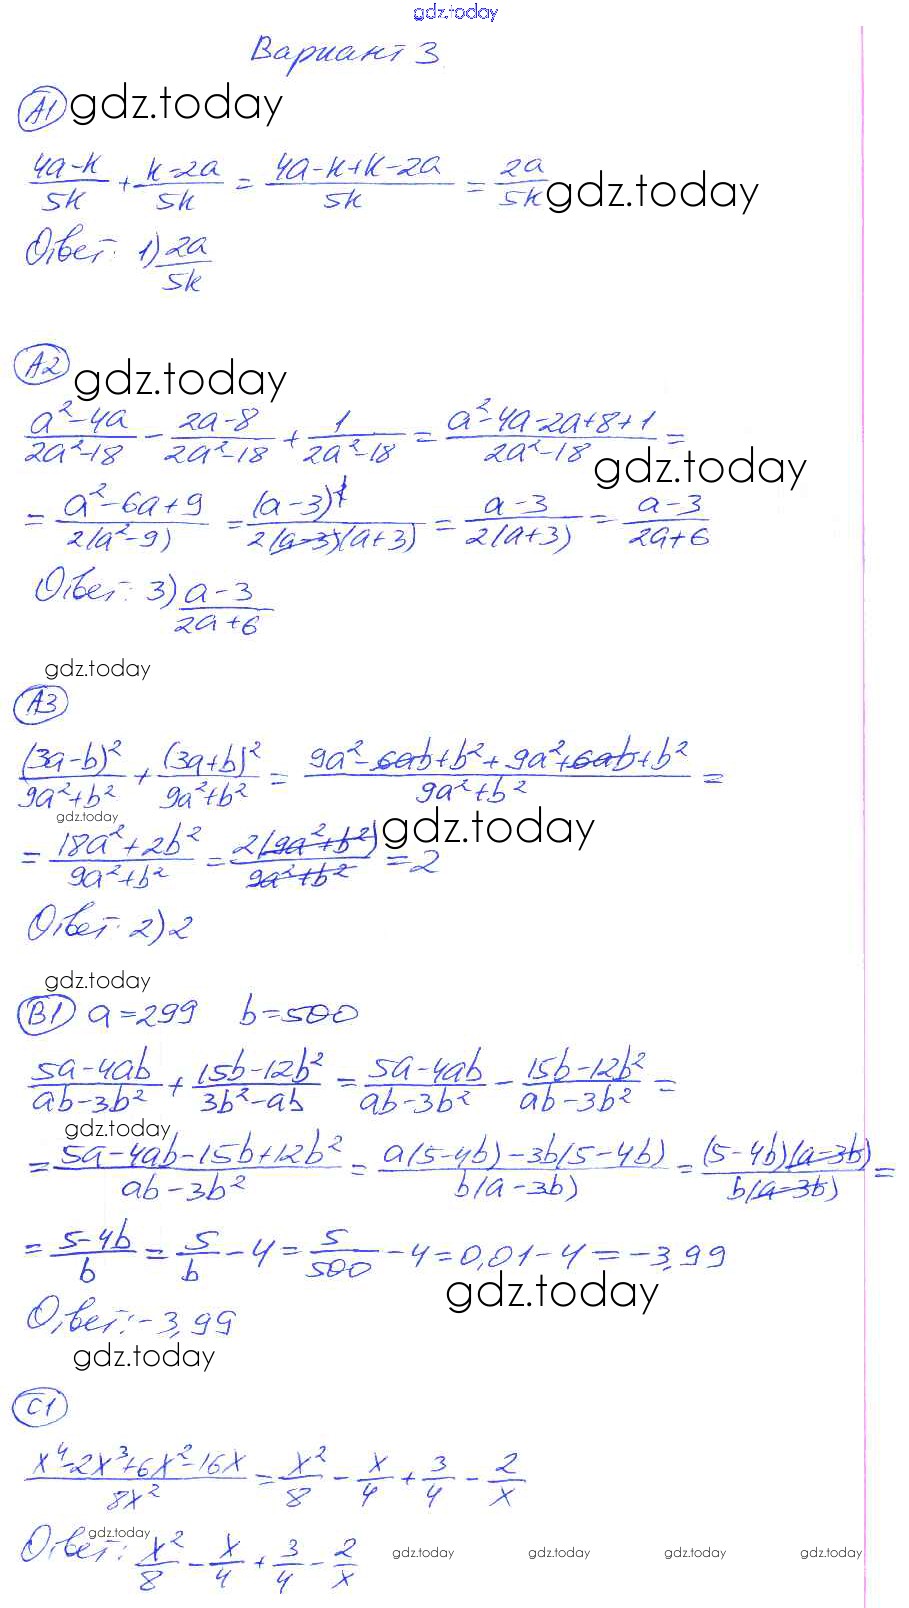 gdz.today
Вариант 3
А1 gdz.today
(4a-k)/5k + (k-2a)/5k = (4a-k+k-2a)/5k = 2a/5k gdz.today
Ответ: 1) 2a/5k
А2 gdz.today
(a²-4a)/(2a²-18) - (2a-8)/(2a²-18) + 1/(2a²-18) = (a²-4a-2a+8+1)/(2a²-18) =
gdz.today
= (a²-6a+9)/(2(a²-9)) = (a-3)²/(2(a-3)(a+3)) = (a-3)/(2(a+3)) = (a-3)/(2a+6)
Ответ: 3) (a-3)/(2a+6)
gdz.today
А3
(3a-b)²/(9a²+b²) + (3a+b)²/(9a²+b²) = (9a²-6ab+b²+9a²+6ab+b²)/(9a²+b²) =
gdz.today
gdz.today
= (18a²+2b²)/(9a²+b²) = 2(9a²+b²)/(9a²+b²) = 2
Ответ: 2) 2
gdz.today
В1 a=299 b=500
(5a-4ab)/(ab-3b²) + (15b-12b²)/(3b²-ab) = (5a-4ab)/(ab-3b²) - (15b-12b²)/(ab-3b²) =
gdz.today
= (5a-4ab-15b+12b²)/(ab-3b²) = (a(5-4b)-3b(5-4b))/(b(a-3b)) = (5-4b)(a-3b)/(b(a-3b)) =
= (5-4b)/b = 5/b - 4 = 5/500 - 4 = 0,01 - 4 = -3,99
gdz.today
Ответ: -3,99
gdz.today
С1
(x⁴-2x³+6x²-16x)/8x² = x²/8 - x/4 + 3/4 - 2/x
gdz.today
Ответ: x²/8 - x/4 + 3/4 - 2/x
gdz.today gdz.today gdz.today gdz.today